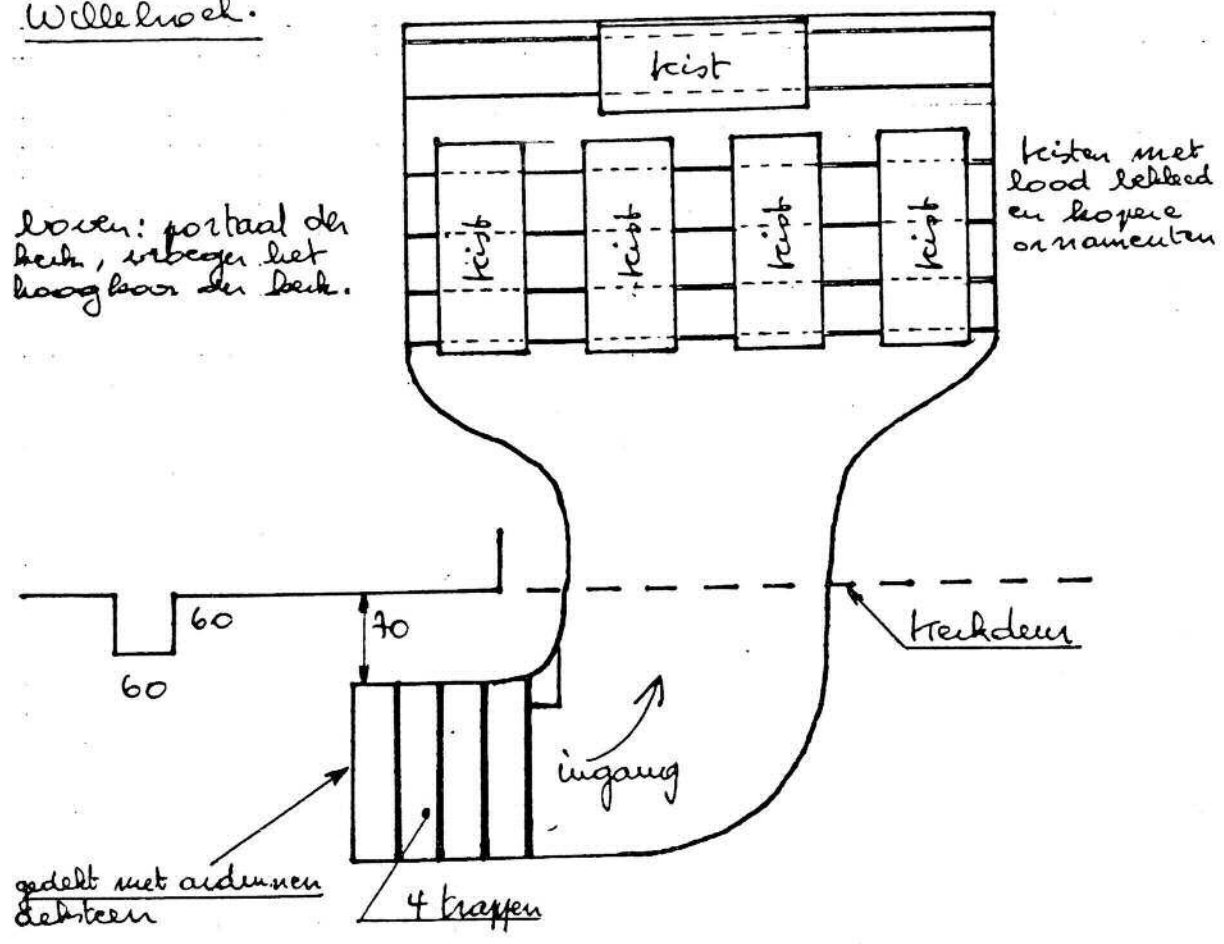 Willebroek.
kist
kist
kist
kist
kist
kisten met
lood bekleed
en kopere
ornamenten
boven: portaal der
kerk, vroeger het
hoogkoor der kerk.
60
60
70
kerkdeur
ingang
gedekt met arduinnen
deksteen
4 trappen